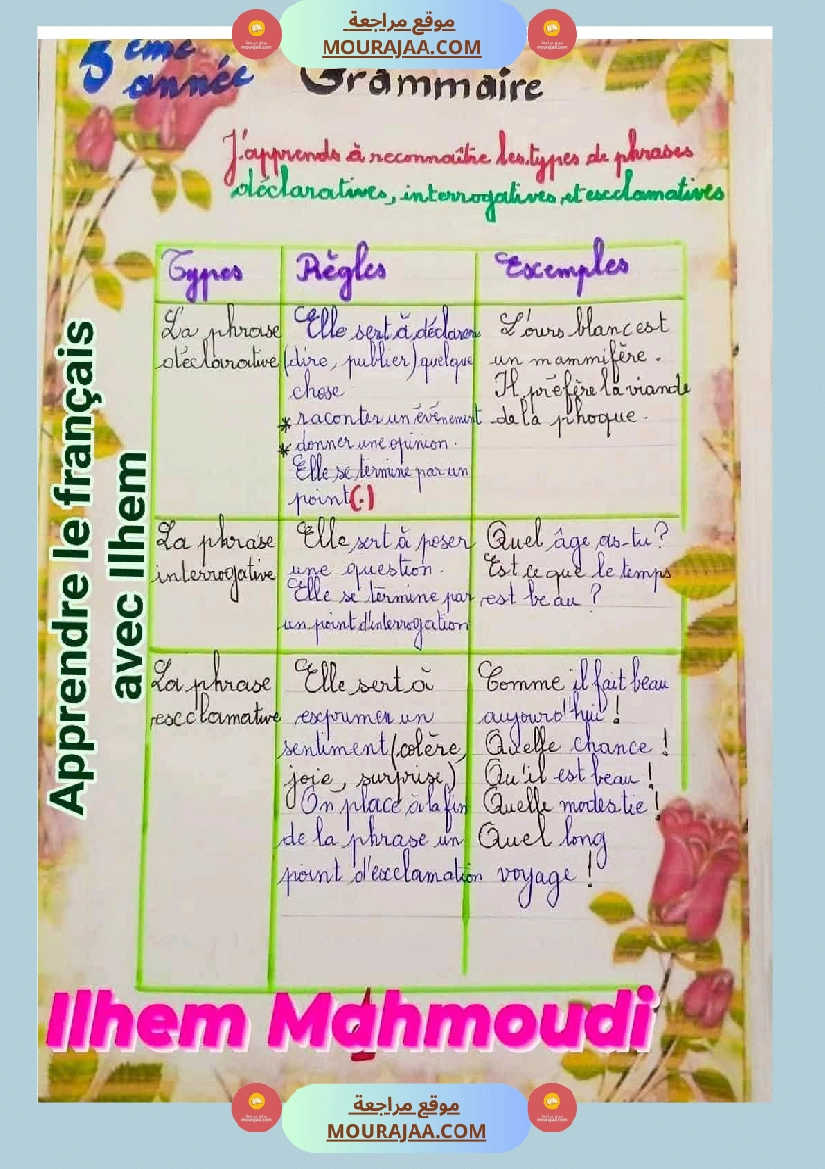 موقع مراجعة
MOURAJAA.COM
5ème année
Grammaire
J'apprends à reconnaître les types de phrases
déclaratives, interrogatives et esclamatives
Types
Règles
Exemples
La phrase
déclarative
Elle sert à déclarer
(dire, publier) quelque
chose
* raconter un événement
* donner une opinion.
Elle se termine par un
point(.)
L'ours blanc est
un mammifère.
Il préfère la viande
de la phoque.
La phrase
interrogative
Elle sert à poser
une question.
Elle se termine par
un point d'interrogation
Quel âge as-tu?
Est ce que le temps
est beau ?
La phrase
exclamative
Elle sert à
exprimer un
sentiment (colère,
joie, surprise)
On place à la fin
de la phrase un
point d'exclamation
Comme il fait beau
aujourd'hui !
Quelle chance !
Qu'il est beau !
Quelle modestie !
Quel long
voyage !
Apprendre le français
avec Ilhem
Ilhem Mahmoudi
1
موقع مراجعة
MOURAJAA.COM